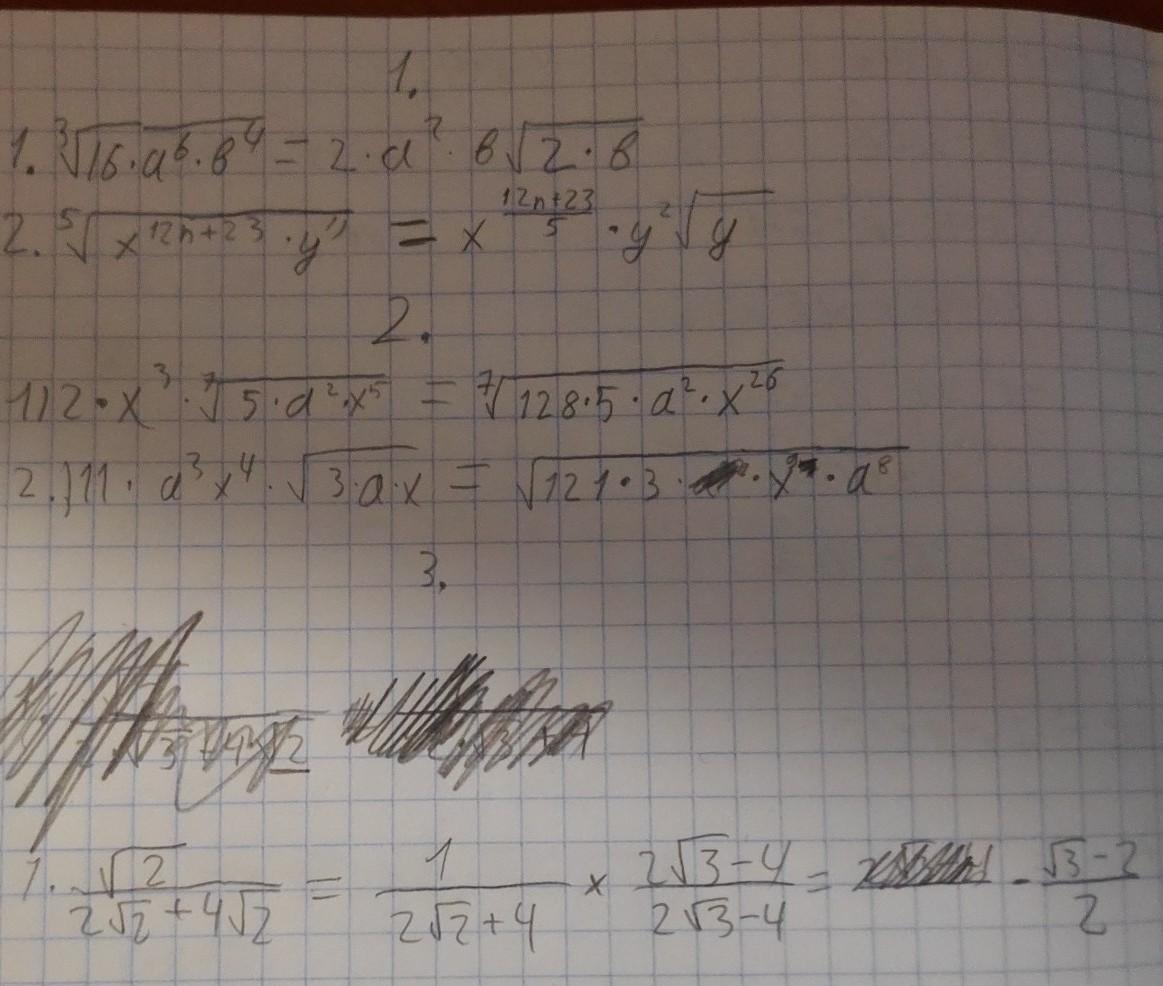 1.
1. ∛(16·a⁶·b⁴) = 2·a²·b√(2·b)
2. ⁵√(x¹²ⁿ⁺²³·y¹¹) = x^((12n+23)/5)·y²√y
2.
1) 2·x³·⁷√(5·a²·x⁵) = ⁷√(128·5·a²·x²⁶)
2.) 11·a³x⁴·√(3·a·x) = √(121·3··x⁹·a⁸)
3.
1. √2/(2√2+4√2) = 1/(2√2+4) × (2√3-4)/(2√3-4) = -(√3-2)/2